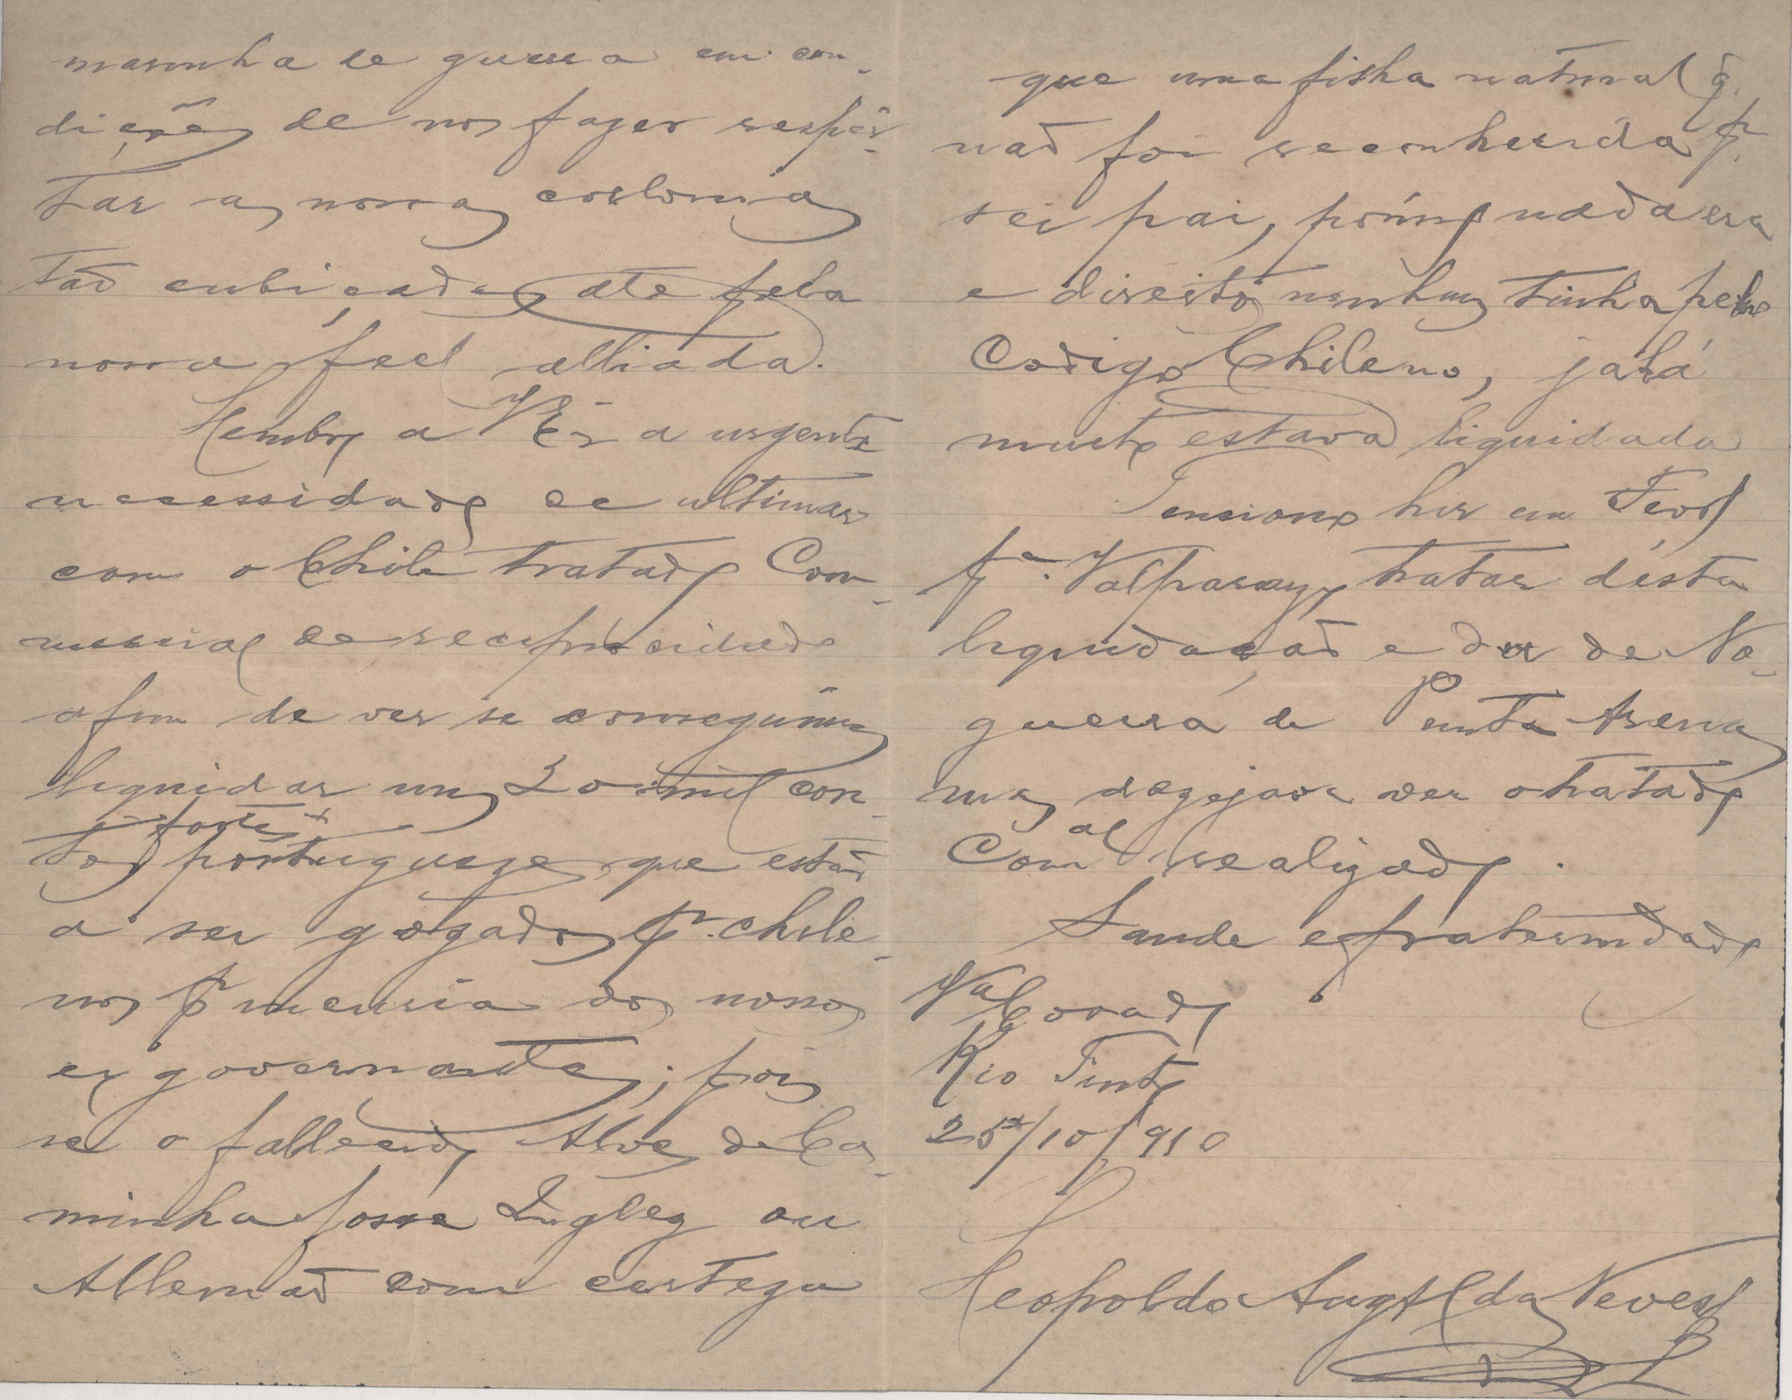 marinha de guerra em con-
dições de nos fazer respei-
tar as nossas colonias
tão cubiçadas até pela
nossa fiel alliada.
Lembro a V Exª a urgente
necessidade de ultimar
com o Chile tratado Com-
mercial de reciprocidade
afim de ver se conseguimos
liquidar uns 20 mil con-
tos fortes portuguezes que estão
a ser gozados pr. chile-
nos pr incuria dos nossos
ex governantes; pois
se o fallecido Alves de Ca-
minha fosse Inglez ou
Allemão com certeza
que uma filha natural q.
não foi reconhecida pr.
seu pai, porisso nada era
e direitos nenhuns tinha pelo
Codigo Chileno, já há
muito estava liquidada
Tenciono hir em Fevº
pª. Valparaizo tratar désta
liquidação e da de No-
gueira de Punta Arenas
mas dezejava ver o tratado
Comal realizado.
Saude e fraternidade
Vª Covado
Rio Tinto
25/10/910
Leopoldo Augto das Neves